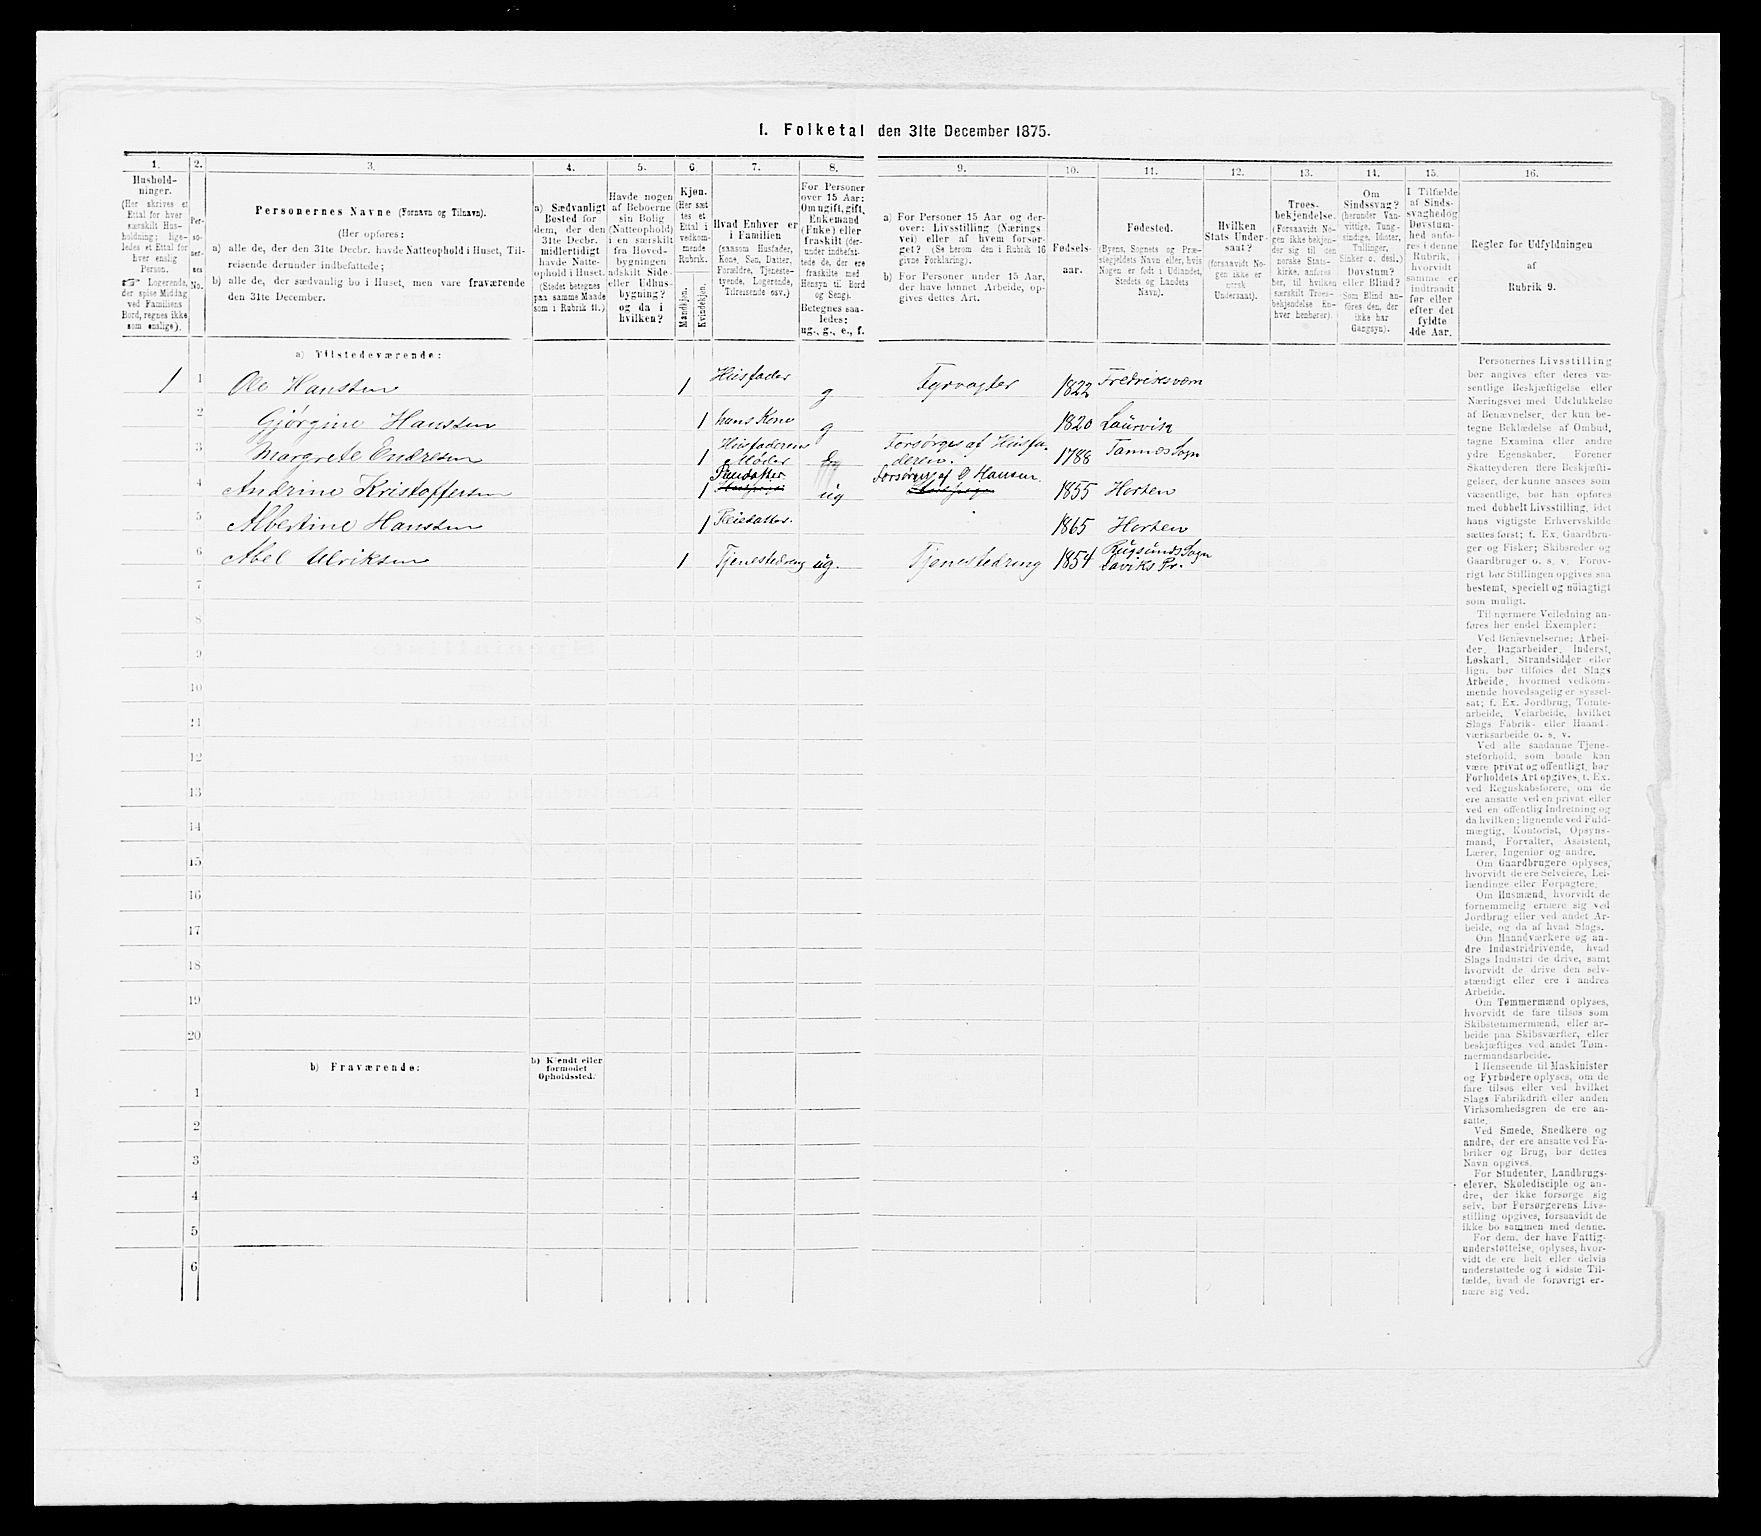 I. Folketal den 31te December 1875.
1. 2. 3. 4. 5. 6. 7. 8. 9. 10. 11. 12. 13. 14. 15. 16.
Hushold-
ninger.
(Her skrives et
Ettal for hver
særskilt Hus-
holdning; lige-
ledes et Ettal for
hver enslig
Person.
☞ Logerende,
der spise Middag
ved Familiens
Bord, regnes ikke
som enslige).
Per-
so-
ner-
nes
No.
Personernes Navne (Fornavn og Tilnavn).
(Her opføres:
a) alle de, der den 31te Decbr. havde Natteophold i Huset, Til-
reisende derunder indbefattede;
b) alle de, der sædvanlig bo i Huset, men vare fraværende
den 31te December.
a) Sædvanligt
Bested for
dem, der den
31te Decbr.
midlertidigt
havde Natte-
ophold i Huset.
(Stedet betegnes
paa samme Maade
som i Rubrik 11.)
Havde nogen
af Beboerne
sin Bolig
(Natteophold)
i en særskilt
fra Hoved-
bygningen
adskilt Side-
eller Udhus-
bygning?
og da i
hvilken?
Kjøn.
(Her sæt-
tes et
Ettal i
vedkom-
mende
Rubrik.
Mandkjøn.
Kvindekjøn.
Hvad Enhver er
i Familien
(saasom Husfader,
Kone, Søn, Datter,
Forældre, Tjeneste-
tyende, Logerende,
Tilreisende osv.)
For Personer
over 15 Aar:
Om ugift, gift,
Enkemand
(Enke) eller
fraskilt (der-
under indbefat-
tede de, der ere
fraskilte med
Hensyn til Bord
og Seng).
Betegnes saa-
ledes:
ug., g., e., f.
a) For Personer 15 Aar og der-
over: Livsstilling (Nærings-
vei) eller af hvem forsør-
get? (Se herom den i Rubrik 16
givne Forklaring).
b) For Personer under 15 Aar,
der have lønnet Arbeide, op-
gives dettes Art.
Fødsels-
aar.
Fødested.
(Byens, Sognets og Præ-
stegjeldets Navn eller, hvis
Nogen er født i Udlandet,
Stedets og Landets
Navn).
Hvilken
Stats Under-
saat?
(forsaavidt No-
gen ikke er
norsk
Undersaat).
Troes-
bekjendelse.
(Forsaavidt No-
gen ikke bekjen-
der sig til den
norske Stats-
kirke, anføres
her, til hvilken
særskilt Troes-
bekjendelse En-
hver henhører).
Om
Sindssvag?
(herunder Van-
vittige, Tung-
sindige, Idioter,
Tullinger,
Sinker o. desl.)
Døvstum?
eller Blind?
(Som Blind an-
føres den, der
ikke har
Gangsyn).
I Tilfælde
af Sinds-
svaghed og
Døvstum-
hed anfø-
res i denne
Rubrik,
hvorvidt
samme er
indtraadt
før eller
efter det
fyldte
4de Aar.
Regler for Udfyldningen
af
Rubrik 9.
a) Tilstedeværende:
1 1 Ole Hansen 1 Husfader g Fyrvogter 1822 Fredriksværn
2 Gjørgine Hansen 1 hans Kone g 1820 Laurvig
3 Margrete Endresen 1 Husfaderens Moder Forsørges af Husfa-
deren. 1788 Tannes Sogn
4 Andrine Kristoffersen 1 ug Forsørges af O Hansen 1855 Horten
5 Albertine Hansen 1 Pleiedatter. 1865 Horten
6 Abel Ulriksen 1 Tjenestedreng ug. Tjenestedreng 1854 Rugsunds Sogn
Daviks Pr.
7
8
9
10
11
12
13
14
15
16
17
18
19
20
b) Fraværende:
b) Kjendt eller
formodet
Opholdssted.
1
2
3
4
5
6
Personernes Livsstilling
bør angives efter deres væ-
sentlige Beskjæftigelse eller
Næringsvei med Udelukkelse
af Benævnelser, der kun be-
tegne Beklædelse af Ombud,
tagne Examina eller andre
ydre Egenskaber. Forener
Skatteyderen flere Beskjæfti-
gelser, der kunne ansees som
væsentlige, bør han opføres
med dobbelt Livsstilling, idet
hans vigtigste Erhvervskilde
sættes først; f. Ex. Gaardbru-
ger og Fisker; Skibsreder og
Gaardbruger o. s. v. Forøv-
rigt bør Stillingen opgives saa
bestemt, specielt og nøiagtigt
som muligt.
Til nærmere Veiledning an-
føres her endel Exempler:
Ved Benævnelserne: Arbei-
der, Dagarbeider, Inderst,
Løskarl, Strandsidder eller
lign. bør tilføies det Slags
Arbeide, hvormed vedkom-
mende hovedsagelig er syssel-
sat; f. Ex. Jordbrug, Tomte-
arbeide, Veiarbeide, hvilket
Slags Fabrik- eller Haand-
værksarbeide o. s. v.
Ved alle saadanne Tjene-
steforhold, som baade kan
være privat og offentligt, bør
Forholdets Art opgives, f. Ex.
ved Regnskabsførere, om de
ere ansatte ved en privat eller
ved en offentlig Indretning og
da hvilken; lignende ved Fuld-
mægtig, Kontorist, Opsyns-
mand, Forvalter, Assistent,
Lærer, Ingeniør og andre.
Om Gaardbrugere oplyses,
hvorvidt de ere Selveiere, Lei-
lændinge eller Forpagtere.
Om Husmænd, hvorvidt de
fornemmelig ernære sig ved
Jordbrug eller ved andet Ar-
beide, og da af hvad Slags.
Om Haandværkere og an-
dre Industridrivende, hvad
Slags Industri de drive, samt
hvorvidt de drive den selv-
stændigt eller ere i andres
Arbeide.
Om Tømmermænd oplyses,
hvorvidt de fare tilsøs som
Skibstømmermænd, eller ar-
beide paa Skibsværfter, eller
beskjæftiges ved andet Tøm-
mermandsarbeide.
I Henseende til Maskinister
og Fyrbødere oplyses, om de
fare tilsøs eller ved hvilket
Slags Fabrikdrift eller anden
Virksomhedsgren de ere an-
satte.
Ved Smede, Snedkere og
andre, der ere ansatte ved Fa-
briker og Brug, bør dettes
Navn opgives.
For Studenter, Landbrugs-
elever, Skoledisciple og an-
dre, der ikke forsørge sig
selv, bør Forsørgerens Livs-
stilling opgives, forsaavidt de
ikke bo sammen med denne.
For dem, der have Fattig-
understøttelse, oplyses, hvor-
vidt de ere helt eller delvis
understøttede og i sidste Til-
fælde, hvad de forøvrigt er-
nære sig ved.